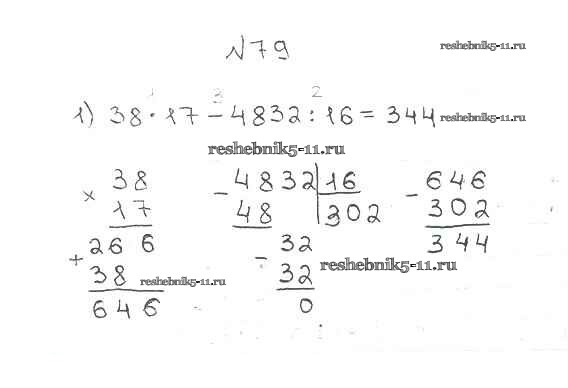 №79
reshebnik5-11.ru
1 3 2
1) 38·17-4832:16=344 reshebnik5-11.ru
reshebnik5-11.ru
× 38 - 4832 16 - 646
17 48 302 302
+ 266 - 32 344
38 reshebnik5-11.ru 32 reshebnik5-11.ru
646 0